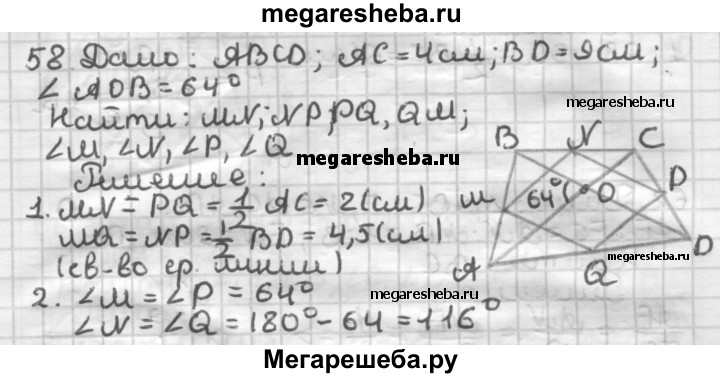 megaresheba.ru
58. Дано: ABCD; AC = 4 см; BD = 9 см;
∠ AOB = 64°
megaresheba.ru
Найти: MN; NP, PQ, QM;
∠M, ∠N, ∠P, ∠Q
megaresheba.ru
Решение:
1. MN = PQ = 1/2 AC = 2 (см)
MQ = NP = 1/2 BD = 4,5 (см)
(св-во ср. линии)
2. ∠M = ∠P = 64°
∠N = ∠Q = 180° - 64 = 116°
B N C
M 64° O P
A Q D
megaresheba.ru
megaresheba.ru
Мегарешеба.ру